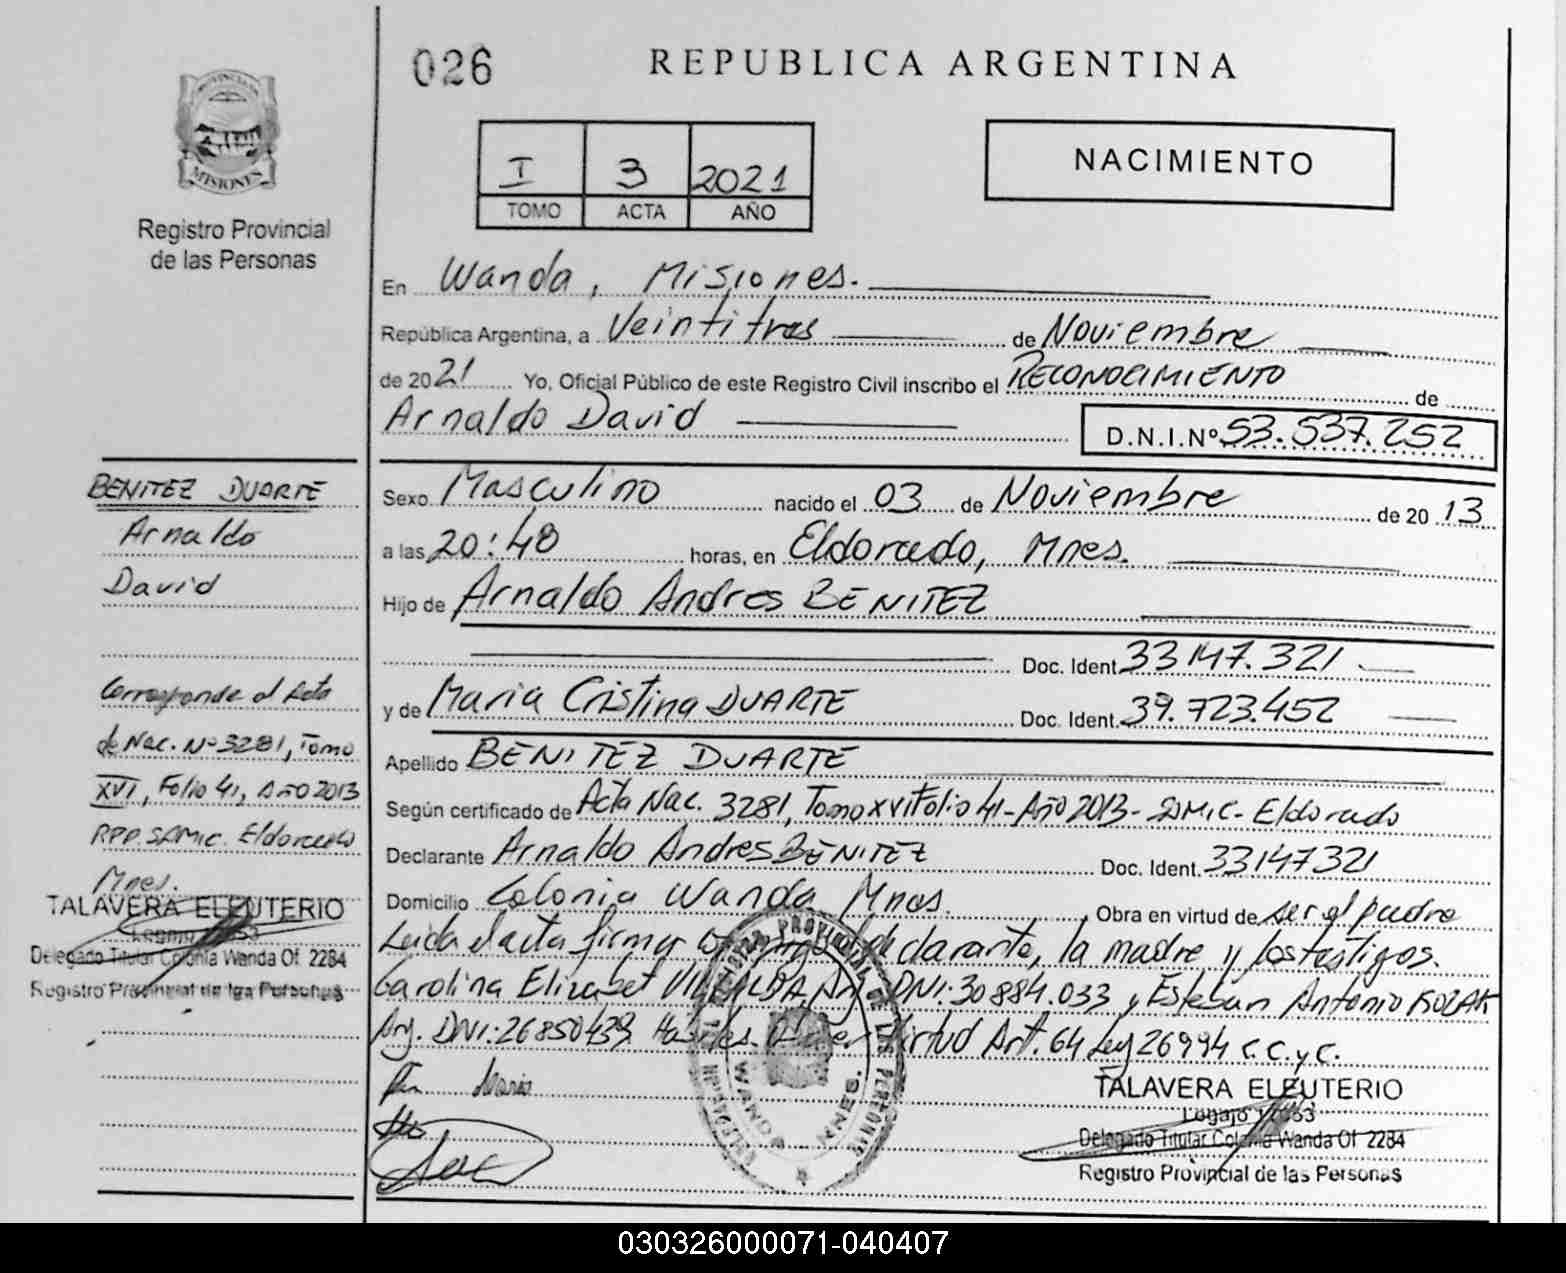 026
REPUBLICA ARGENTINA
MISIONES
Registro Provincial
de las Personas
I 3 2021
TOMO ACTA AÑO
NACIMIENTO
En Wanda, Misiones.
República Argentina, a Veintitres de Noviembre
de 2021 Yo, Oficial Público de este Registro Civil inscribo el RECONOCIMIENTO de
Arnaldo David
D.N.I.Nº 53.537.252
Sexo Masculino nacido el 03 de Noviembre de 2013
a las 20:48 horas, en Eldorado, Mnes.
Hijo de Arnaldo Andres BENITEZ
Doc. Ident. 33147.321
y de Maria Cristina DUARTE Doc. Ident. 39.723.452
Apellido BENITEZ DUARTE
Según certificado de Acta Nac. 3281, Tomo XVI Folio 41-Año 2013- SAMIC- Eldorado
Declarante Arnaldo Andres BENITEZ Doc. Ident. 33147321
Domicilio Colonia Wanda Mnes. Obra en virtud de ser el padre
Leida el acta firman declarante, la madre y los testigos.
Carolina Elizabet VILLALBA, Arg. DNI: 30884.033 y Esteban Antonio KOZAK
Arg. DNI: 26850439 Habiles. virtud Art. 64 Ley 26994 C.C. y C.
Maria
TALAVERA ELEUTERIO
Legajo
Delegado Titular Colonia Wanda Of 2284
Registro Provincial de las Personas
WANDA MNES.
BENITEZ DUARTE
Arnaldo
David
Corresponde al Acta
de Nac. Nº 3281, Tomo
XVI, Folio 41, Año 2013
RPP. SAMIC. Eldorado
Mnes.
TALAVERA ELEUTERIO
Legajo
Delegado Titular Colonia Wanda Of 2284
Registro Provincial de las Personas
030326000071-040407